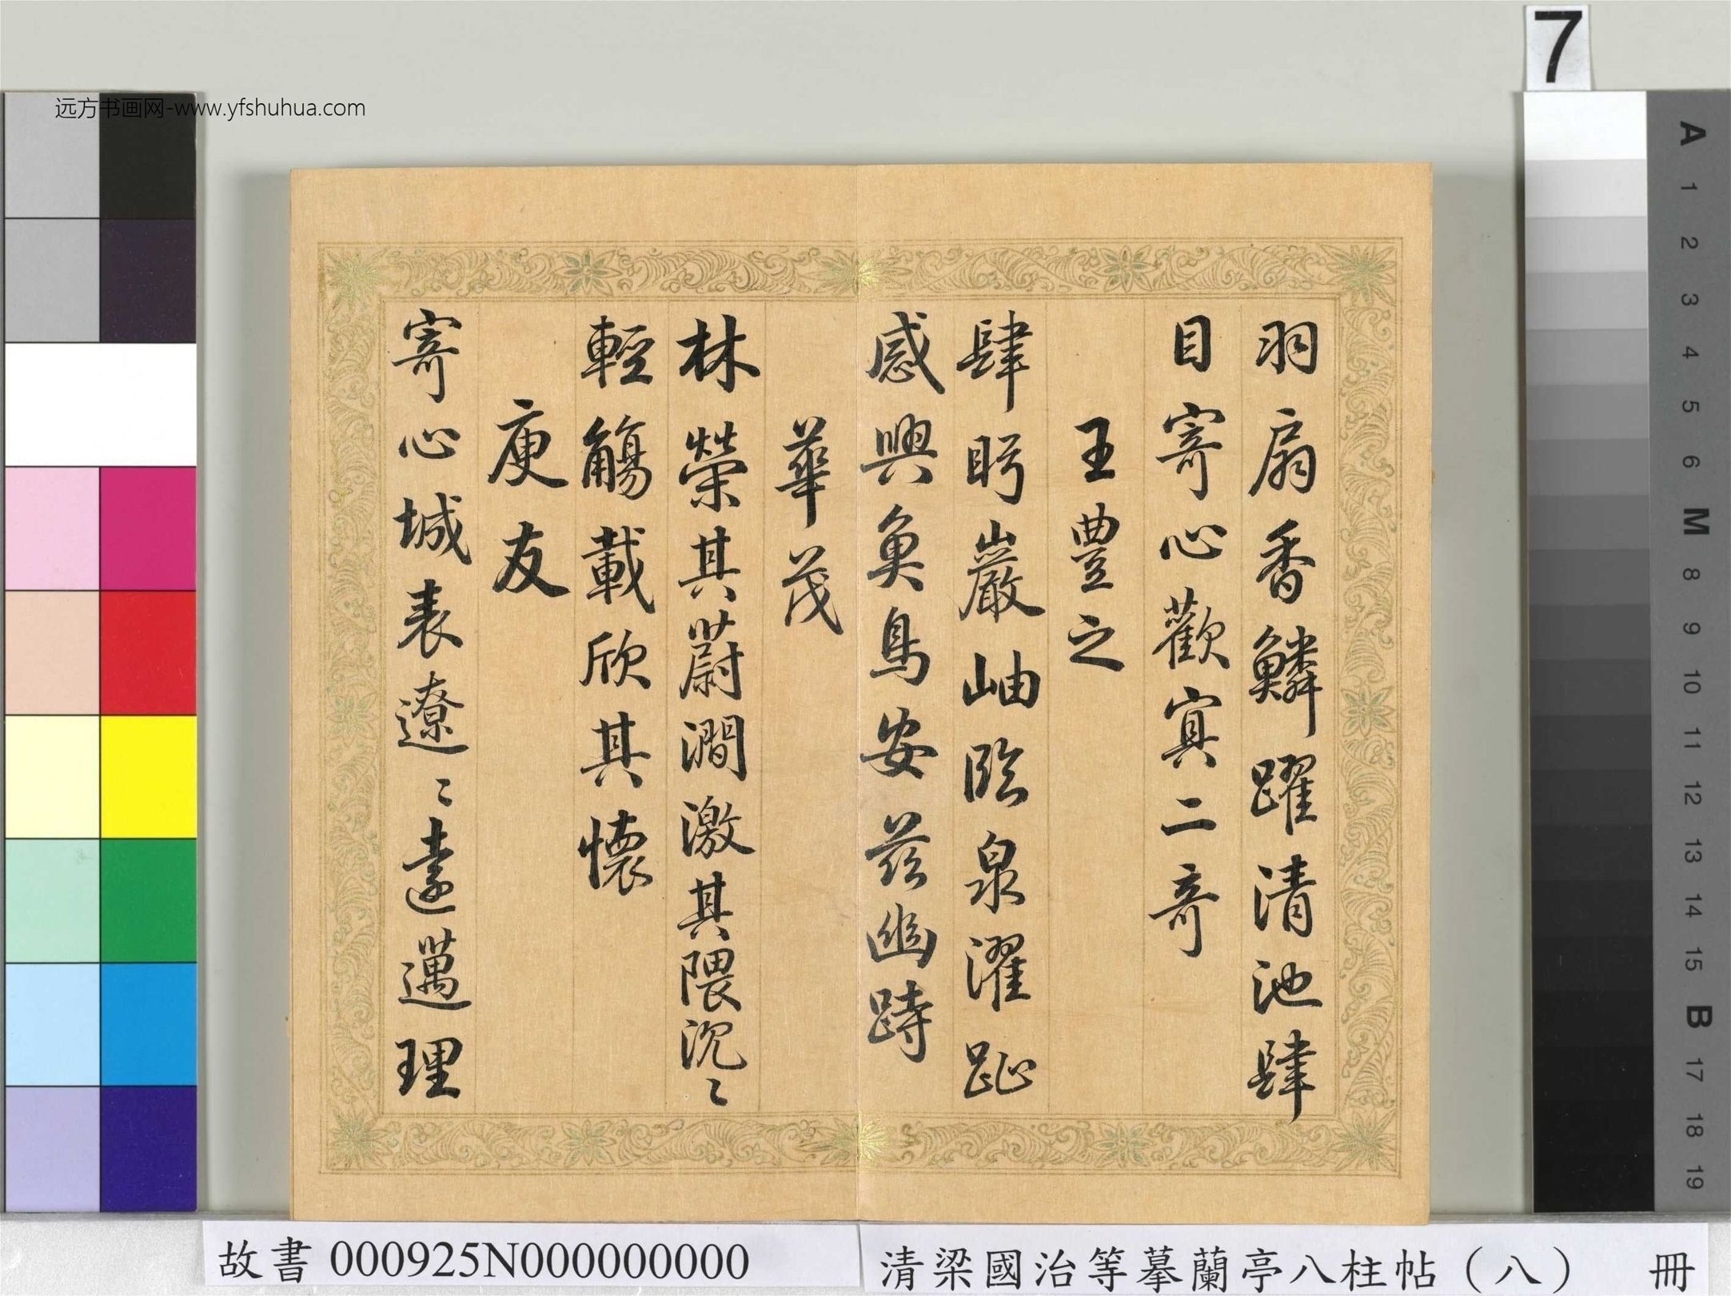 7
远方书画网-www.yfshuhua.com
羽扇香鱗躍清池肆
目寄心歡寘二奇
王豐之
肆眄巖岫臨泉濯趾
感興魚鳥安茲幽跱
華茂
林榮其蔚澗激其隈汎〻
輕觴載欣其懷
庾友
寄心域表遼〻遠邁理
A
1
2
3
4
5
6
M
8
9
10
11
12
13
14
15
B
17
18
19
故書 000925N000000000
清梁國治等摹蘭亭八柱帖（八） 冊